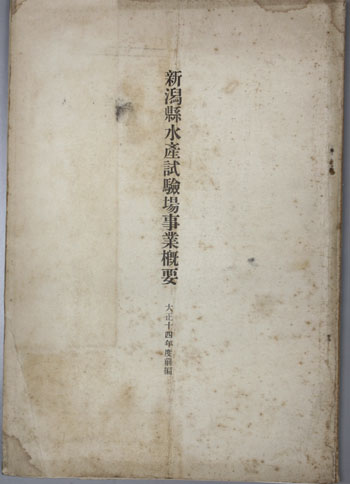 新潟縣水產試驗場事業概要
大正十四年度前編